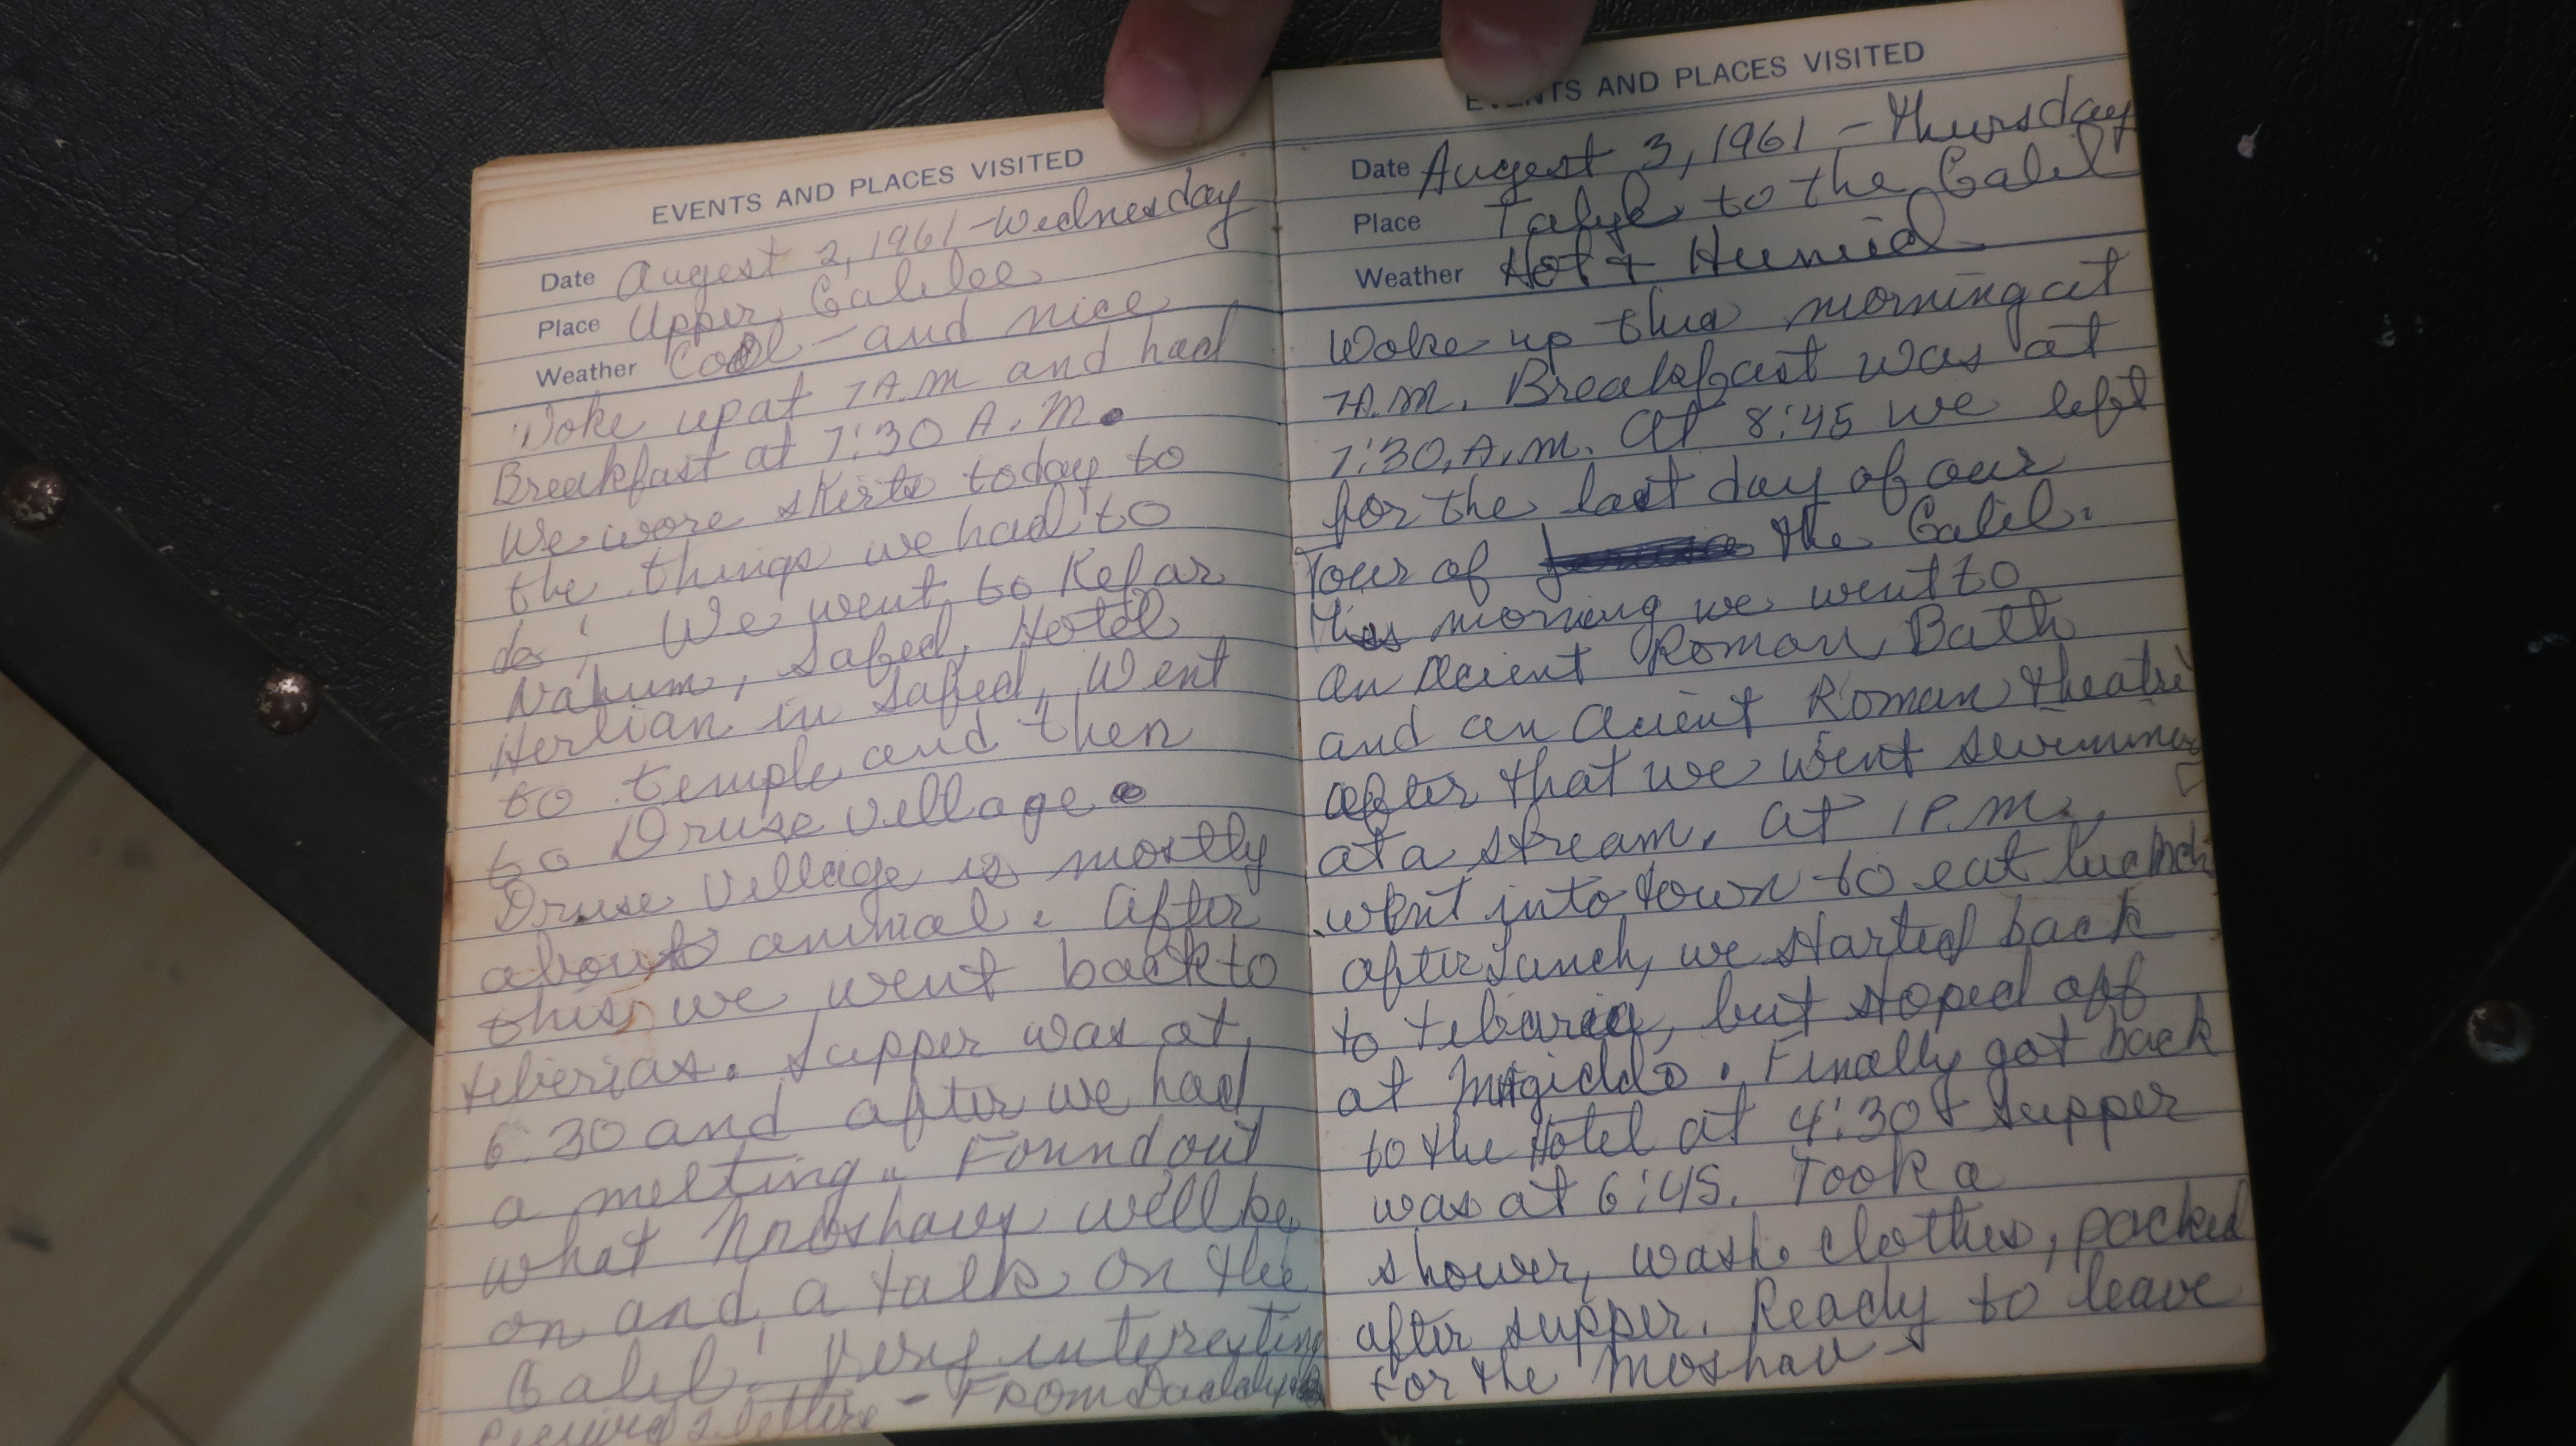 EVENTS AND PLACES VISITED
Date August 2, 1961 - Wednesday
Place Upper Galilee
Weather Cool - and nice
Woke up at 7 A.M and had
Breakfast at 7:30 A.M.
We wore skirts today to
the things we had to
do! We went to Kefar
Nahum, Safed, Hotel
Herlian in Safed, Went
to temple and then
to Druse Village.
Druse Village is mostly
about animal. After
this we went back to
tiberias. Supper was at
6:30 and after we had
a meeting. Found out
what moshavs we'll be
on and a talk on the
Galil! Very interesting
Received 2 letters - From Daddy
EVENTS AND PLACES VISITED
Date August 3, 1961 - Thursday
Place to the Galil
Weather Hot + Humid
Woke up this morning at
7A.M. Breakfast was at
7:30, A.M. At 8:45 we left
for the last day of our
Tour of the Galil.
This morning we went to
an Acient Roman Bath
and an Acient Roman theatre
after that we went swimming
at a stream. At 1 P.M.
went into town to eat lunch
after lunch, we started back
to tibaria, but stoped off
at Migiddo. Finally got back
to the Hotel at 4:30 & supper
was at 6:45. Took a
shower, wash clothes, packed
after supper. Ready to leave
for the Moshav